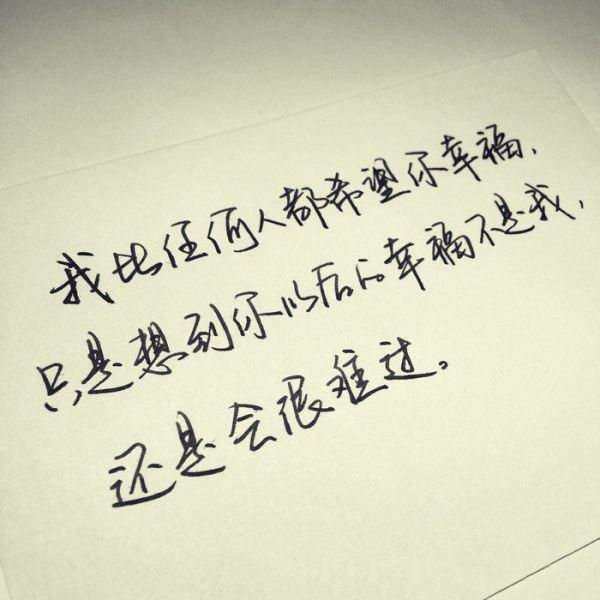 我比任何人都希望你幸福，
只是想到你以后的幸福不是我，
还是会很难过。